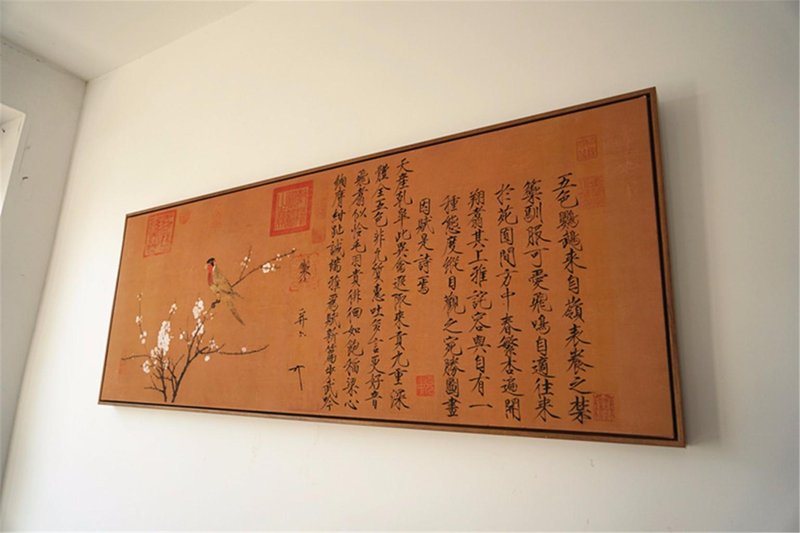 五色鸚鵡來自嶺表養之禁
籞馴服可愛飛鳴自適往來
於苑囿間方中春繁杏遍開
翔翥其上雅詫容與自有一
種態度縱目觀之宛勝圖畫
因賦是詩焉
天產乾皋此異禽遐陬來貢九重深
體全五色非凡質惠吐多言更好音
飛翥似怜毛羽貴徘徊如飽稻粱心
緗膺紺趾誠端雅爲賦新篇步武吟